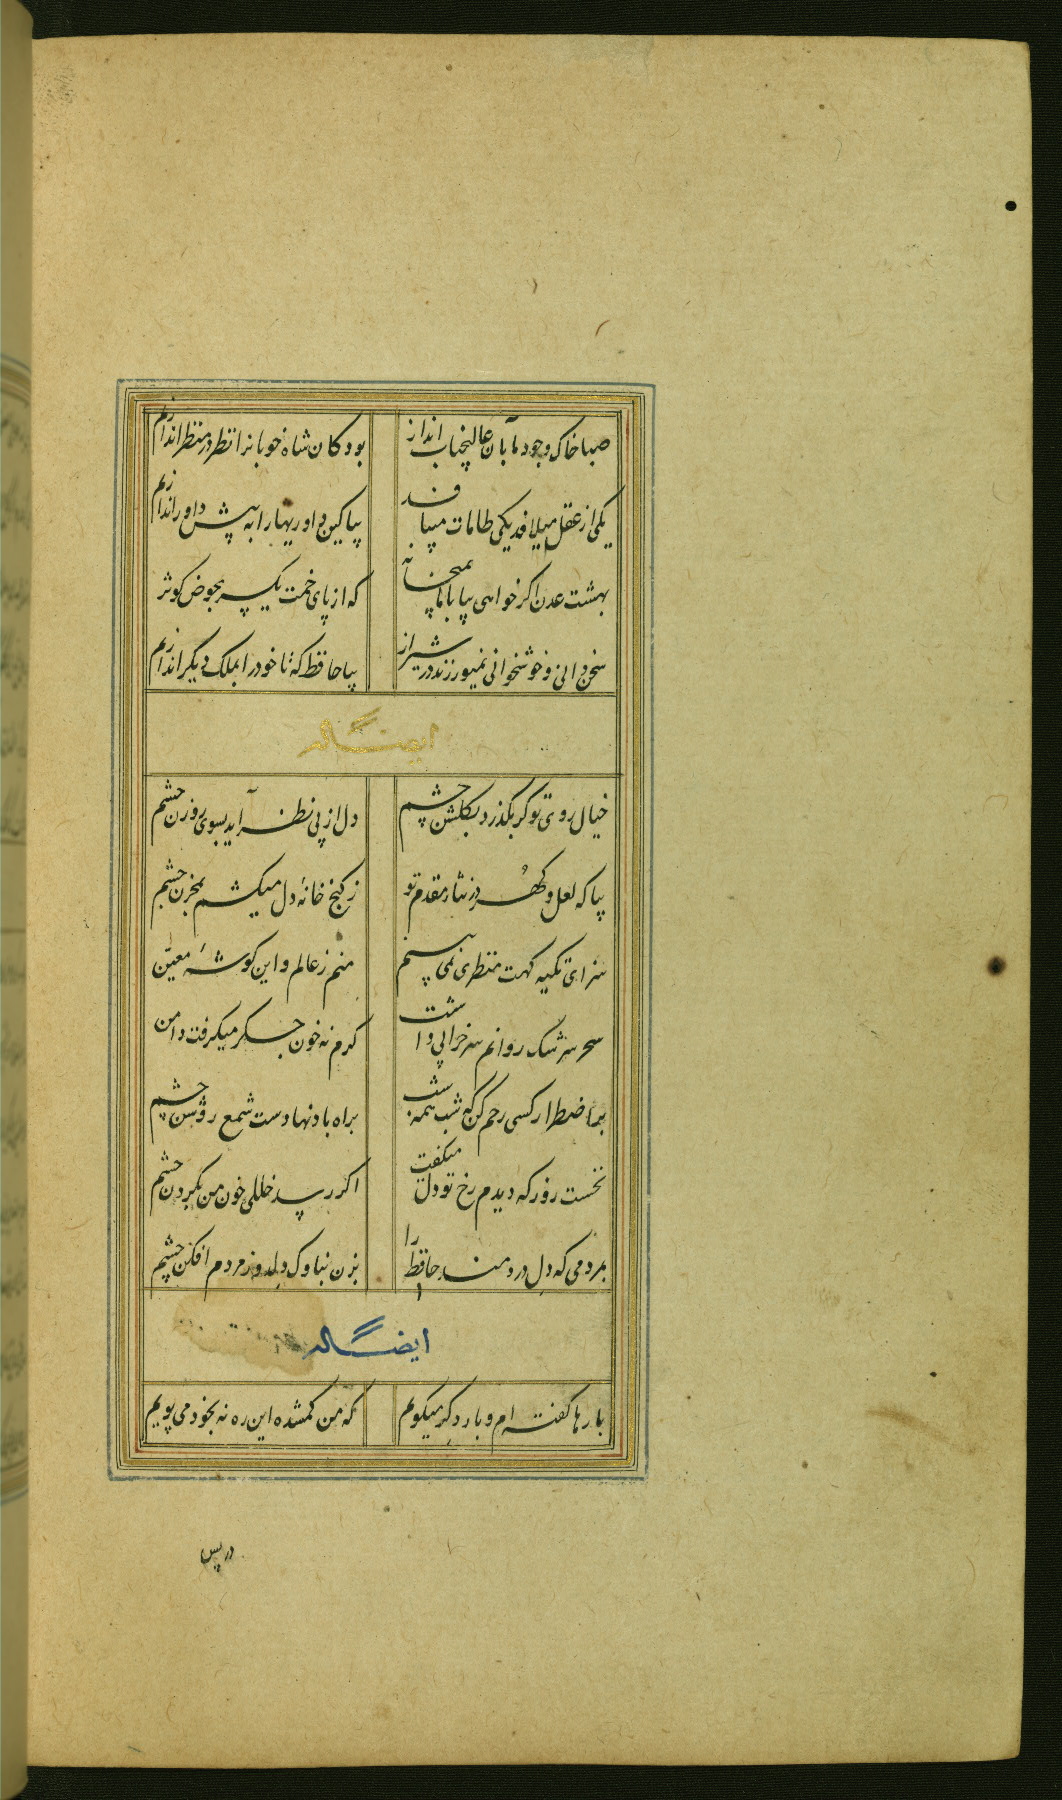 صبا خاک وجود ما بآن عالیجناب انداز
بود کان شاه خوبانرا نظر در منظر اندازیم
یکی از عقل میلافد یکی طامات میبافد
بیا کین داوریها را به پیش داور اندازیم
بهشت عدن اگر خواهی بیا با ما بمیخانه
که از پای خمت یکسر بحوض کوثر
سخن دانی و خوشخوانی نمیورزند در شیراز
بیا حافظ که تا خود را بملک دیگر اندازیم
ایضاً له
خیال روی تو گر بگذرد بگلشن چشم
دل از پی نظر آید بسوی روزن چشم
بیا که لعل و گهر در نثار مقدم تو
ز گنج خانهٔ دل میکشم بمخزن چشم
سزای تکیه گهت منظری نمی بینم
منم ز عالم و این گوشهٔ معین
سحر سرشک روانم سر خرابی داشت
گرم نه خون جگر میگرفت دامن
بما ضطرار کسی رحم کن که شب همه شب
براه باد نهادست شمع روشن چشم
نخست روز که دیدم رخ تو دل میگفت
اگر رسد خللی خون من بگردن چشم
بمردمی که دل دردمند حافظ را
بزن بناوک دلدوز مردم افکن چشم
ایضاً له
بارها گفته ام و بار دگر میگویم
که من گمشده این ره نه بخود می پویم
در پس